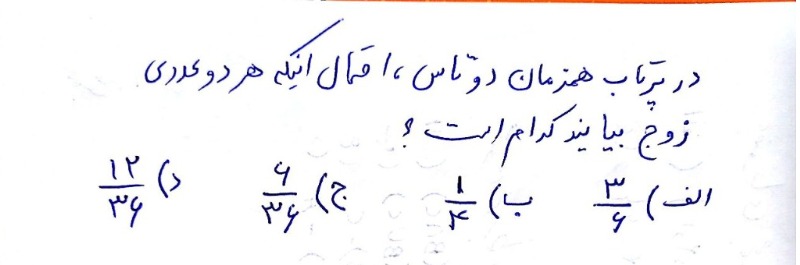 در پرتاب همزمان دو تاس، احتمال اینکه هر دو عددی
زوج بیایند کدام است؟
الف) ۳/۶ ب) ۱/۴ ج) ۶/۳۶ د) ۱۲/۳۶